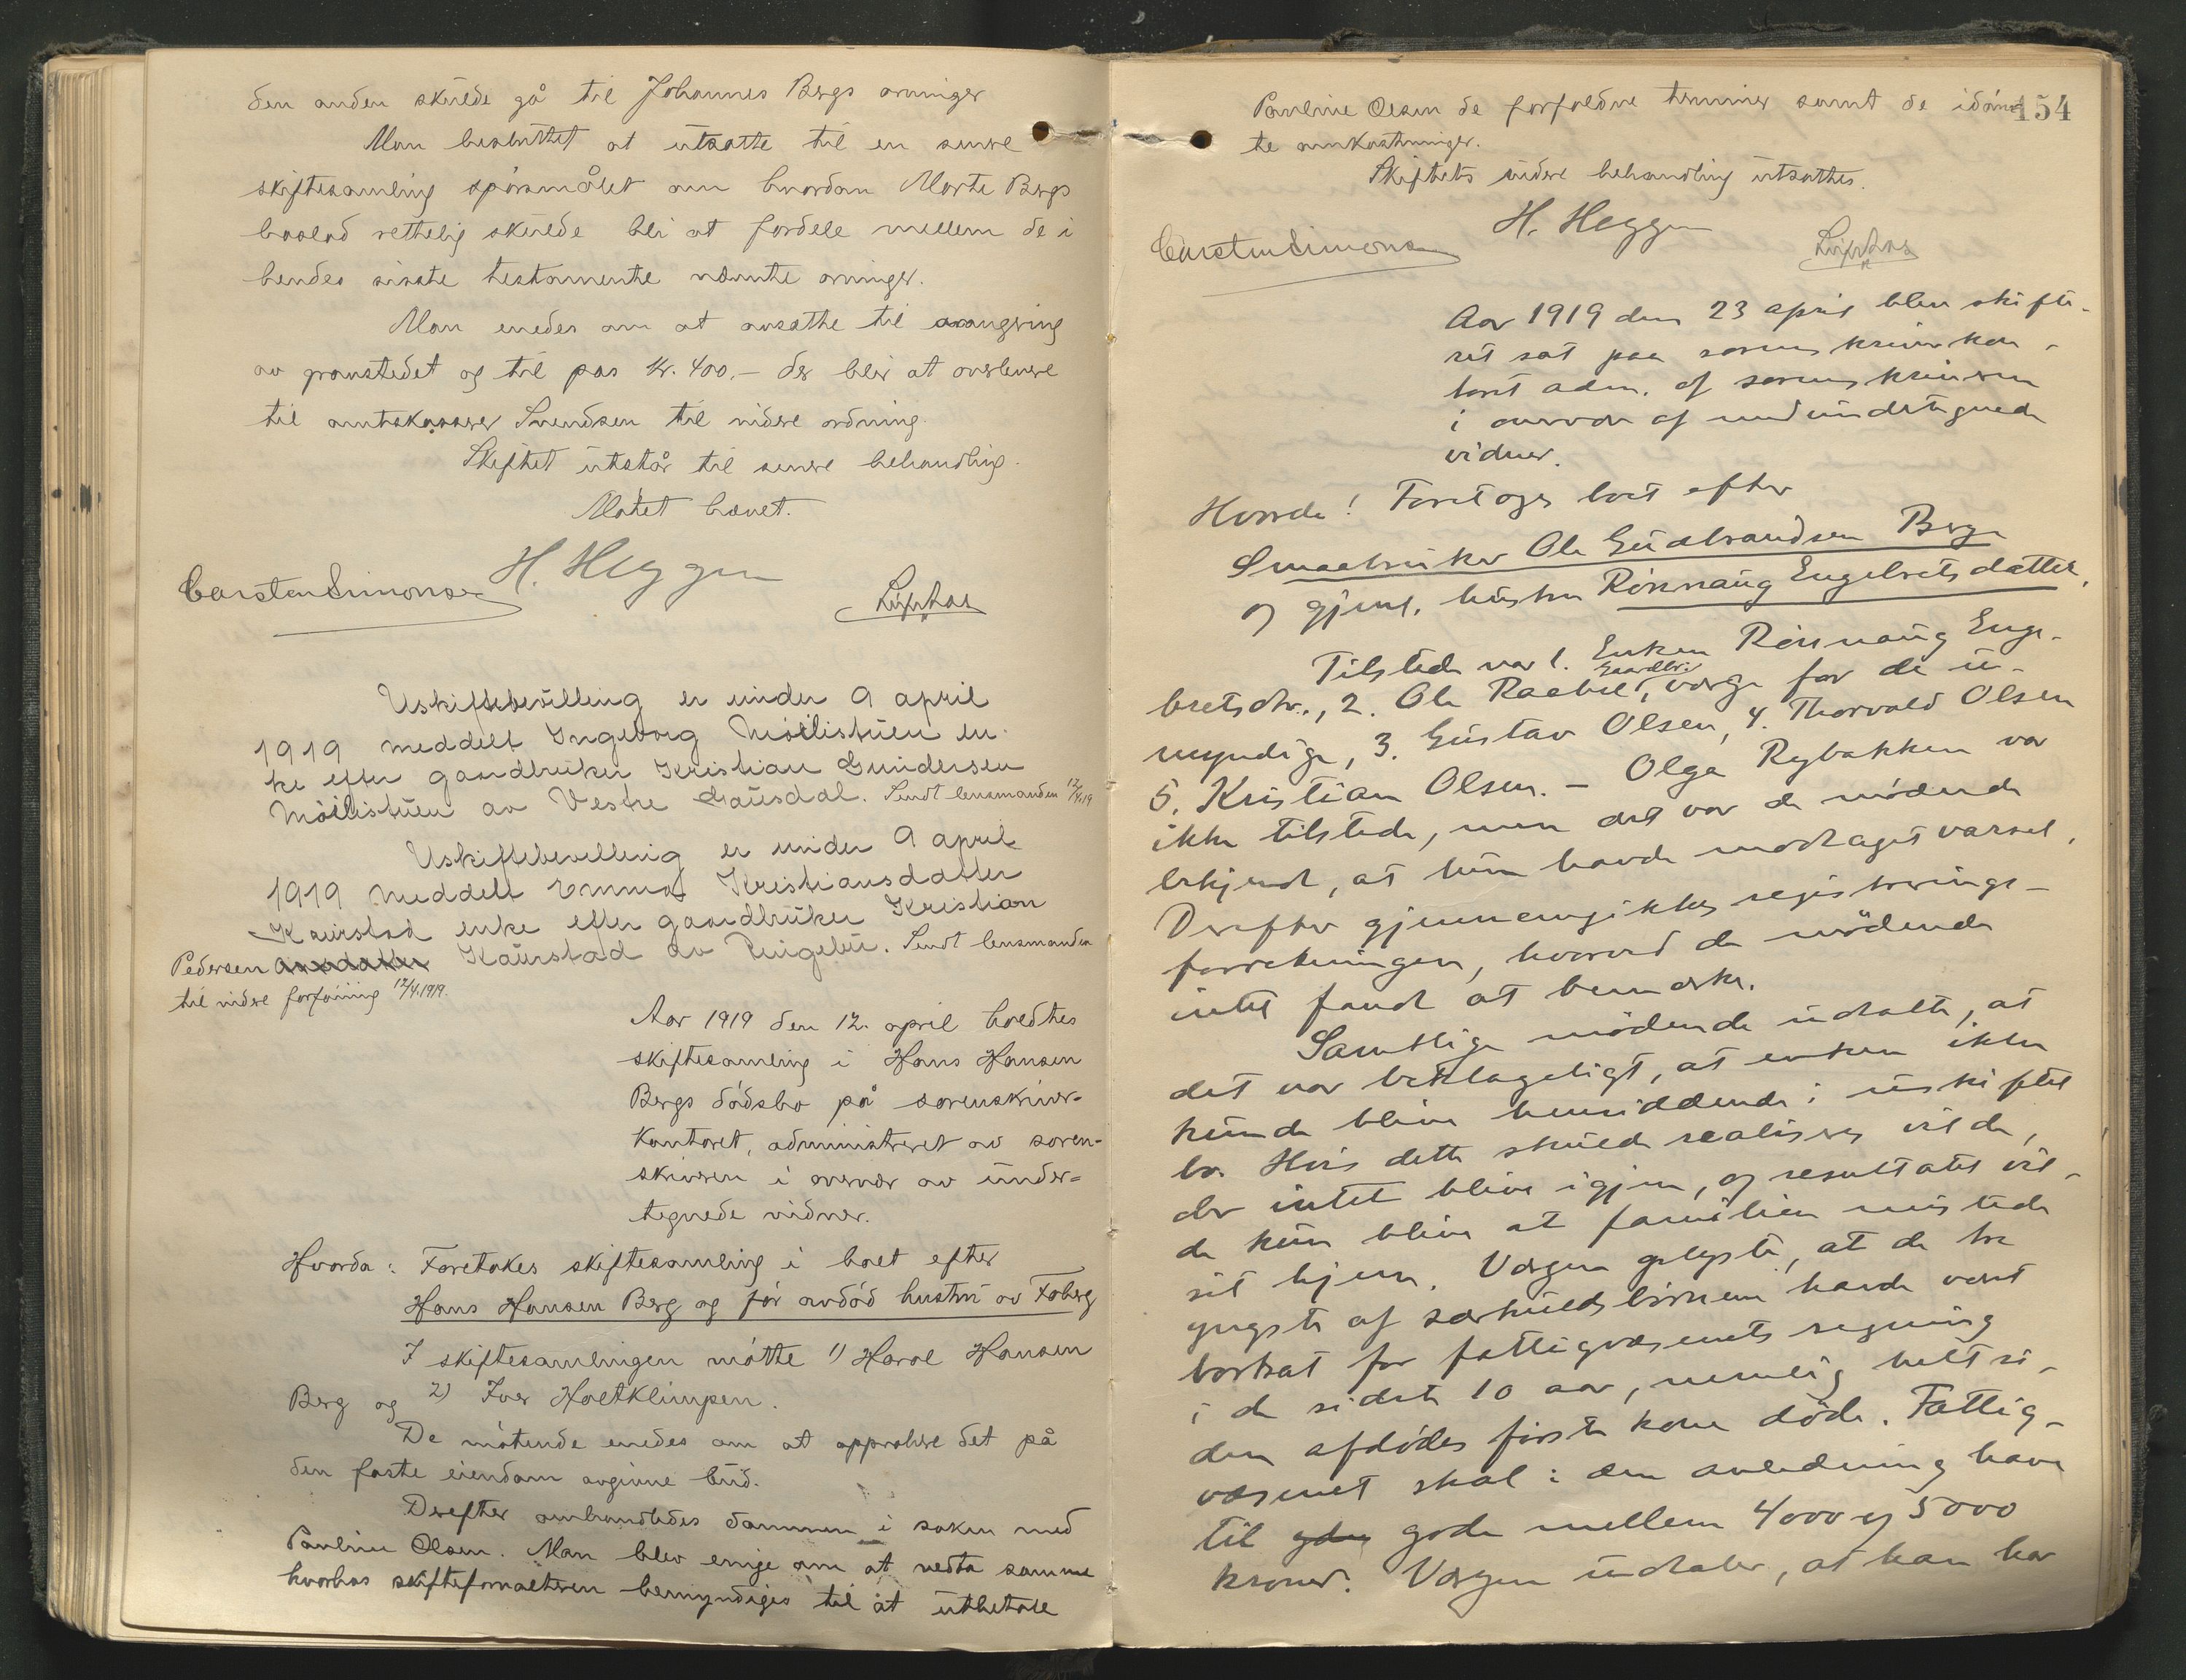 den anden skulde gå til Johannes Bergs arvinger
Man besluttet at utsætte til en senere
skiftesamling spørsmålet om hvordan Marte Bergs
boslod rettelig skulde bli at fordele mellem de i
hendes sisste testamente nævnte arvinger.
Man enedes om at avsætte til
av gravstedet og til pas kr. 400,- der blir at overlevere
til amtskasserer Svendsen til videre ordning.
Skiftet utstår til senere behandling.
Møtet hævet.
Carsten Simonsen H. Heggen
Uskiftebevilling er under 9 april
1919 meddelt Ingeborg Moilistuen en-
ke efter gaardbruker Kristian Gundersen
Moilistuen av Vestre Gausdal. Sendt lensmanden 12/4.19
Uskiftebevilling er under 9 april
1919 meddelt Emma Kristiansdatter
Kaurstad enke efter gaardbruker Kristian
Pedersen Kaurstad av Ringebu. Sendt lensmanden
til videre forføining 12/4.1919.
Aar 1919 den 12. april holdtes
skiftesamling i Hans Hansen
Bergs dødsbo på sorenskriver-
kontoret, administreret av soren-
skriveren i overvær av under-
tegnede vidner.
Hvorda: Foretokes skiftesamling i boet efter
Hans Hansen Berg og før avdød hustru av Foberg
I skiftesamlingen møtte 1) Harol Hansen
Berg og 2) Iver Holtklimpen.
De møtende enedes om at approbere det på
den faste eiendom avgivne bud.
Derefter omhandledes dommen i saken med
Pauline Olsen. Man blev enige om at vedta samme
hvorhos skifteforvalteren bemyndiges til at utbetale
154
Pauline Olsen de forfaldne terminer samt de idøm-
te omkostninger.
Skiftets videre behandling utsattes.
Carsten Simonsen H. Heggen
Aar 1919 den 23 april blev skifte-
ret sat paa sorenskriverkon-
toret adm. af sorenskriveren
i overvær af undertegnede
vidner.
Hvorda! Foretoges boet efter
Smaabruker Ole Gudbrandsen Berge
og gjenl. hustru Rønnaug Engebretsdatter.
Tilstede var 1. Enken Rønnaug Enge-
bretsdtr., 2. Gaardbr. Ole Raabøl, verge for de u-
myndige, 3. Gustav Olsen, 4. Thorvald Olsen
5. Kristian Olsen. - Olga Rybakken var
ikke tilstede, men det var de mødende
bekjendt, at hun havde modtaget varsel.
Derefter gjennemgikkes registrerings-
forretningen, hvorved de mødende
intet fandt at bemærke.
Samtlige mødende udtalte, at
det var beklageligt, at enken ikke
kunde blive hensiddende i uskiftet
bo. Hvis dette skulde realiseres vilde
der intet blive igjen, og resultatet vil-
de kun blive at familien mistede
sit hjem. Vergen oplyste, at de tre
yngste af særkuldsbørnene havde været
bortsat for fattigvæsenets regning
i de sidste 10 aar, nemlig helt si-
den afdødes første kone døde. Fattig-
væsenet skal i den anledning have
til gode mellem 4000 og 5000
kroner. Vergen udtaler, at han har